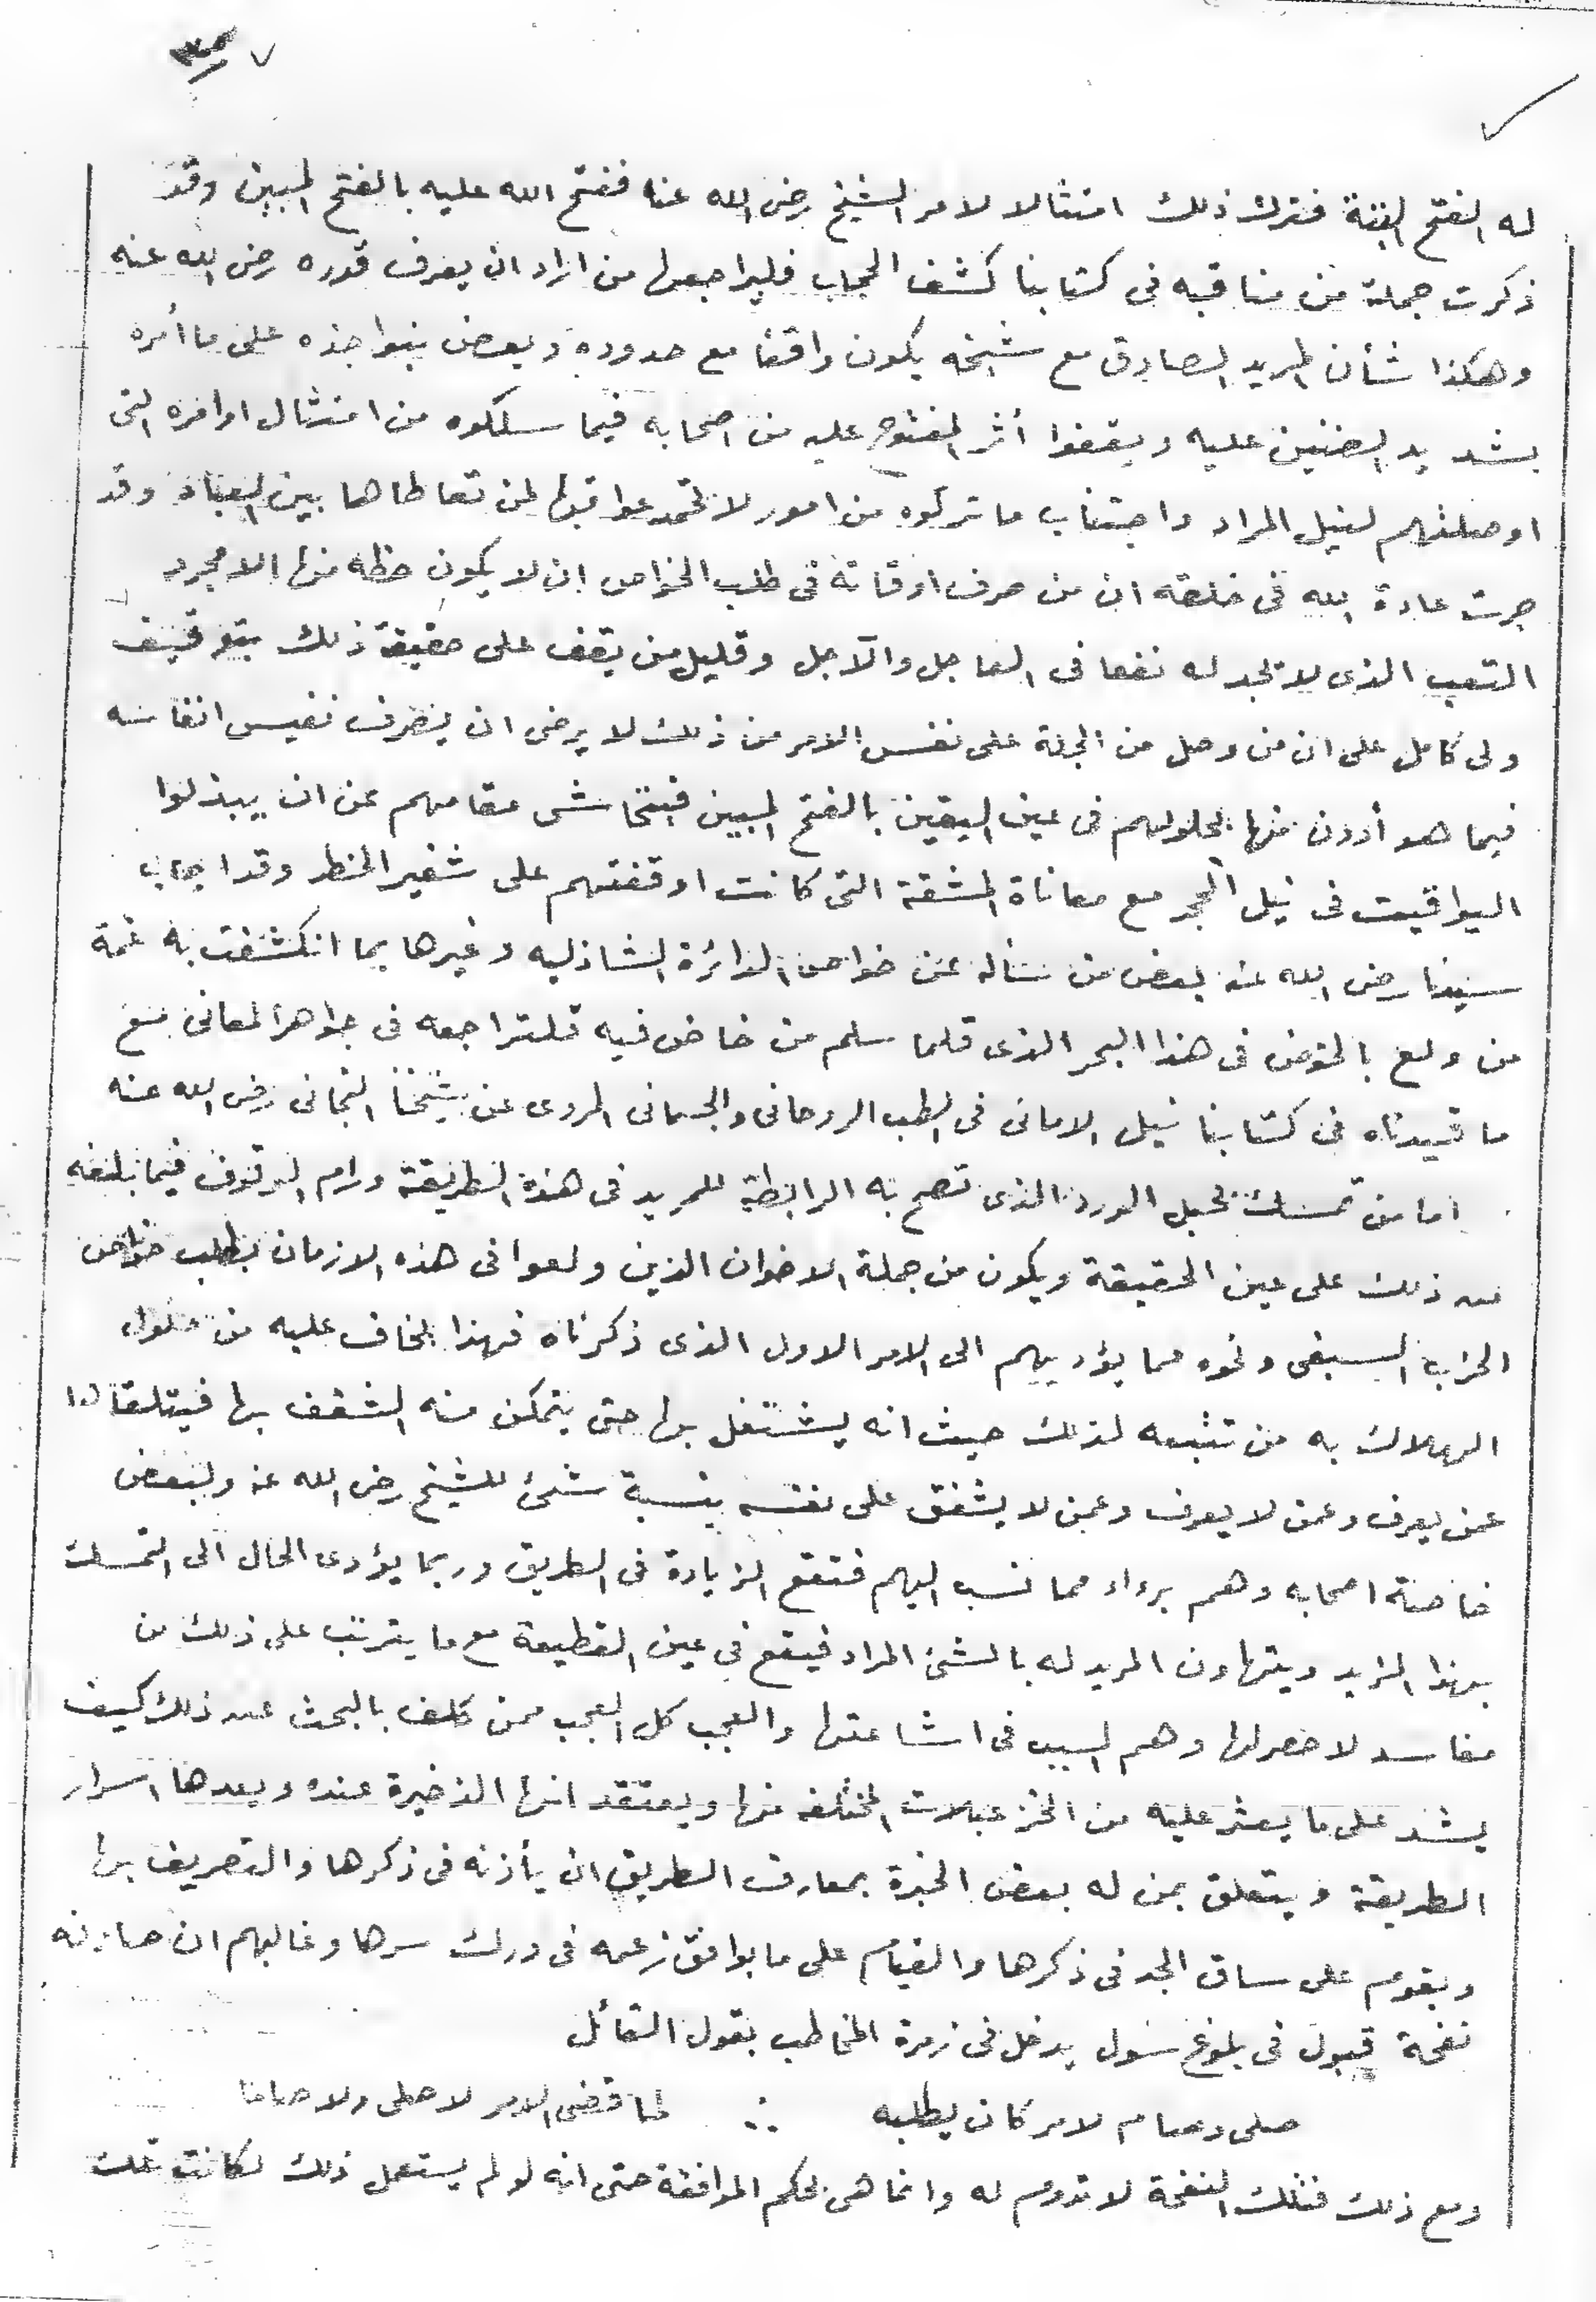 له الفتح البتة فترك ذلك امتثالا لامر الشيخ رضى الله عنه ففتح الله عليه بالفتح المبين وقد
ذكرت جملة من مناقبه فى كتابنا كشف الحجاب فليراجعها من اراد ان يعرف قدره رضى الله عنه
وهكذا شأن المريد الصادق مع شيخه يكون واقفا مع حدوده ويعض بنواجذه على ما أمره
بشد يد الضنين عليه ويقفوا أثر المفتوح عليه من اصحابه فيما سلكوه من امتثال اوامره التى
اوصلتهم لنيل المراد واجتناب ما تركوه من امور لا تحمد عواقبها لمن تعاطاها بين العباد وقد
جرت عادة الله فى خلقه ان من صرف اوقاته فى طلب الخواص ان لا يكون حظه منها الا مجرد
التعب الذى لا يجد له نفعا فى العاجل والآجل وقليل من يقف على حقيقة ذلك بتوقيف
ولى كامل على ان من وصل من الجلة على نفس الامر من ذلك لا يرضى ان يصرف نفيس انفاسه
فيما هو أدون منها لحلولهم فى عين اليقين بالفتح المبين فيتحاشى مقامهم عن ان يبذلوا
اليواقيت فى نيل الحجر مع معاناة المشقة التى كانت اوقفتهم على شفير الخطر وقد اجاب
سيدنا رضى الله عنه بعض من سأله عن خواص الدائرة الشاذليه وغيرها بما انكشفت به غمة
من ولع بالخوض فى هذا البحر الذى قلما سلم من خاض فيه فلتراجعه فى جواهر المعانى مع
ما قيدناه فى كتابنا نيل الامانى فى الطب الروحانى والجسمانى المروى عن شيخنا التجانى رضى الله عنه
اما من تمسك بحبل الورد الذى تصح به الرابطة للمريد فى هذه الطريقة ورام الوقوف فيما بلغه
من ذلك على عين الحقيقة ويكون من جملة الاخوان الذين ولعوا فى هذه الازمان بطلب خواص
الحزب السيفى ونحوه مما يؤديهم الى الامر الاول الذى ذكرناه فهذا يخاف عليه من حلول
الهلاك به من تتبعه لذلك حيث انه يشتغل بها حتى يتمكن منه الشغف بها فيتلقاها
عمن يعرف وعمن لا يعرف وعمن لا يشفق على نفسه بنسبة شئ للشيخ رضى الله عنه ولبعض
خاصة اصحابه وهم برءاء مما نسب اليهم فتقع الزيادة فى الطريق وربما يؤدى الحال الى التمسك
بهذا المزيد ويتهاون المريد له بالشئ المراد فيقع فى عين القطيعة مع ما يترتب على ذلك من
مفاسد لا حصر لها وهم السبب فى اشاعتها والعجب كل العجب ممن كلف بالبحث عن ذلك كيف
يشد على ما يعثر عليه من الخزعبلات المختلفه منها ويعتقد انها الذخيرة عنده ويعدها اسرار
الطريقة ويتعلق بمن له بعض الخبرة بمعارف الطريق ان يأذنه فى ذكرها والتصريف بها
ويقوم على ساق الجد فى ذكرها والقيام على ما يوافق زعمه فى درك سرها وغالبهم ان صادفه
نفحة قبول فى بلوغ سول يدخل فى زمرة المخاطب بقول القائل
صلى وصام لامر كان يطلبه ∴ لما قضى الامر لا صلى ولا صاما
ومع ذلك فتلك النفحة لا تدوم له وانما هى بحكم الموافقة حتى انه لو لم يستعمل ذلك لكانت تلك